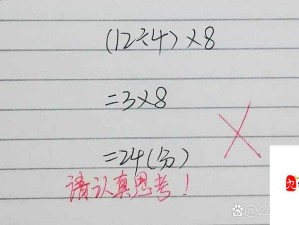 (12÷4)×8
=3×8
=24(分)
请认真思考！